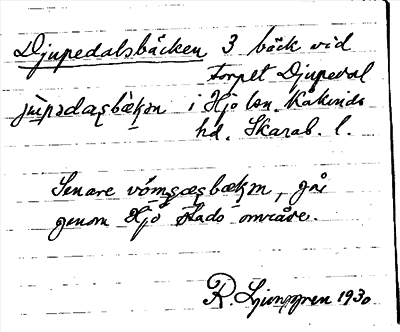 Djupedalsbäcken 3 bäck vid
torpet Djupedal
jùpədasbæḳən i Hjo lsn. Kåkinds
hd. Skarab. l.
Senare vömsæsbæḳən, går
genom Hjo stads område.
R. Ljunggren 1930